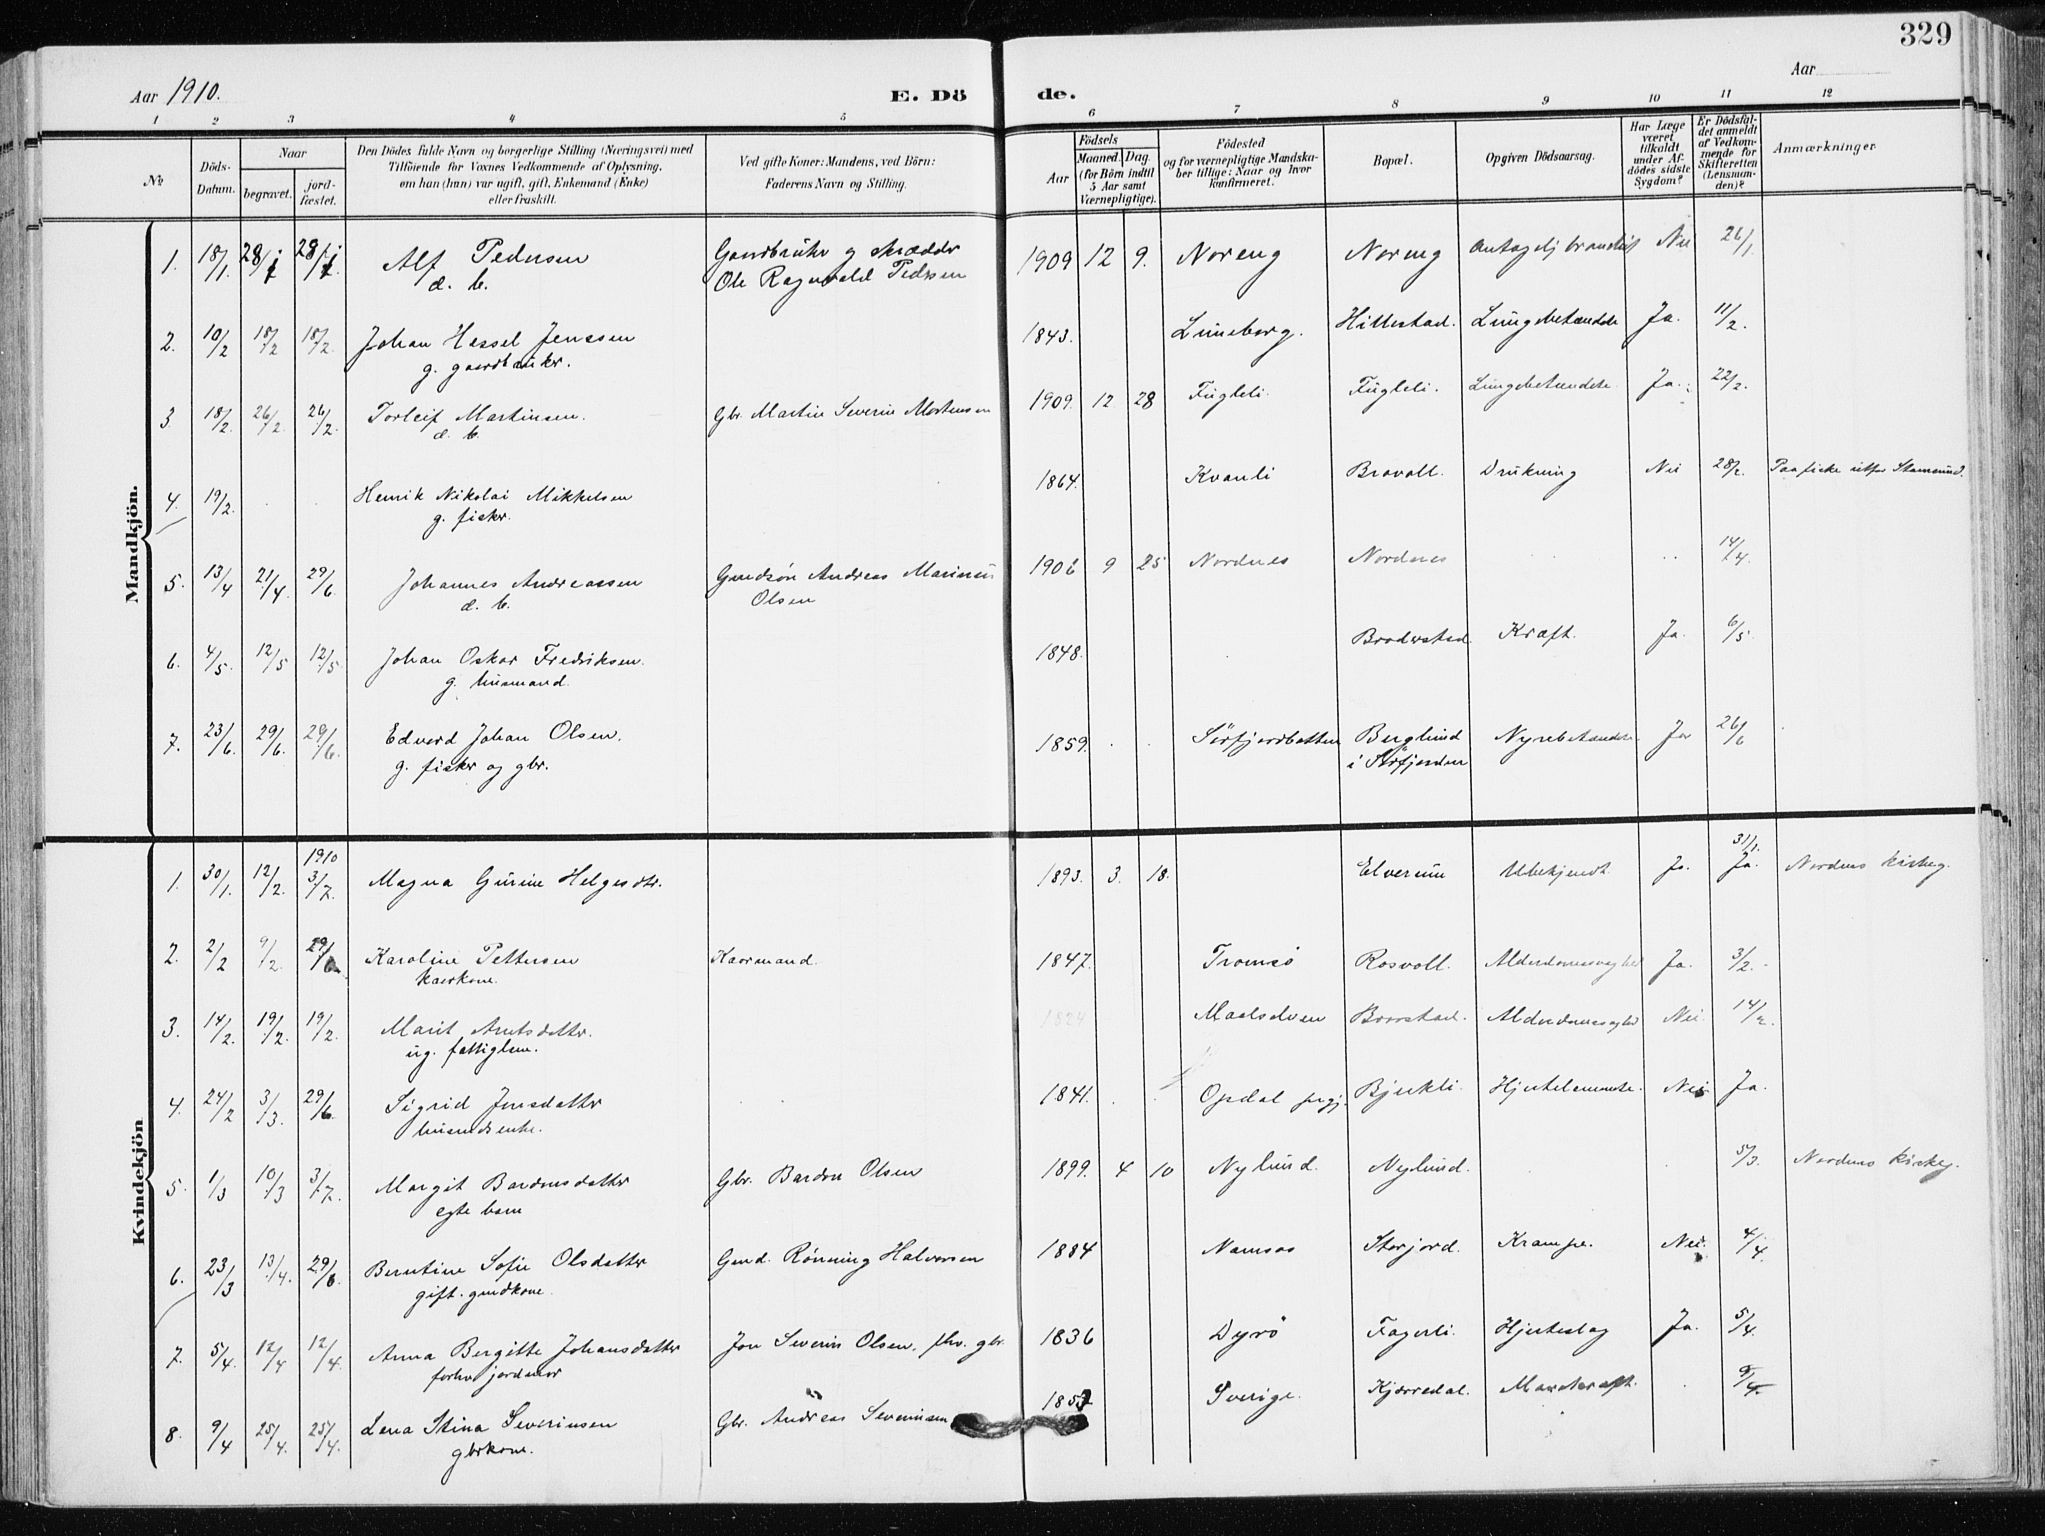 329
Aar 1910.
E. Dö
de.
Aar
1 2 3 4 5 6 7 8 9 10 11 12
No
Döds-Datum.
Naar
begravet.
jord-fæstet.
Den Dödes fulde Navn og borgerlige Stilling (Næringsvei) med
Tilföiende for Voxnes Vedkommende af Oplysning,
om han (hun) var ugift, gift, Enkemand (Enke)
eller fraskilt.
Ved gifte Koner: Mandens, ved Börn:
Faderens Navn og Stilling.
Födsels
Aar
Maaned. Dag.
(for Börn indtil
5 Aar samt
Værnepligtige).
Födested
og for værnepligtige Mandska-
ber tillige: Naar og hvor
konfirmeret.
Bopæl.
Opgiven Dödsaarsag.
Har Læge
været
tilkaldt
under Af-
dödes sidste
Sygdom?
Er Dödsfal-
det anmeldt
af Vedkom-
mende for
Skifteretten
(Lensman-
den)?
Anmærkninger
Mandkjön.
1. 18/1. 28/1 28/1. Alf Pedersen Gaardbruker og Skrædder 1909 12 9. Noreng Noreng Nei 26/1.
d. b. Ole Ragnvald Pedersen
2. 10/2 18/2 18/2. Johan Hessel Jenssen 1843. Luneborg. Hillestad. Lungebetændelse Ja. 11/2.
g. gaardbruker.
3. 18/2. 26/2 26/2. Torleif Martinsen. Gbr. Martin Severin Mortensen 1909. 12 28 Fugleli. Fugleli. Lungebetændelse Ja. 22/2.
d. b.
4. 19/2. Henrik Nikolai Mikkelsen 1864. Kvanli Bravoll. Drukning Nei 28/2. Paa fiske utfor Stamsund.
g. fisker.
5. 13/4 21/4. 29/6. Johannes Andreassen Gmdsøn Andreas Marinus 1906 9 25 Nordnes Nordnes 14/4.
d. b. Olsen
6. 4/5. 12/5 12/5. Johan Oskar Fredriksen. 1848. Braderstad Kræft. Ja. 6/5.
g. husmand.
7. 23/6. 29/6. 29/6. Edvard Johan Olsen. 1859. Sørfjordbotten Berglund Nyrebetændelse Ja 26/6
g. fisker og gbr. i Sørfjorden
Kvindekjön
1. 30/1. 12/2. 1910 3/7. Magna Gurine Helgesdtr. 1893. 3. 18. Elverum Ubekjendt Ja. 31/1. Ja. Nordens kirkeg.
2. 2/2 9/2. 29/6. Karoline Pettersen Kaarmand. 1847. Tromsø Rosvoll. Alderdomssvaghed Ja. 3/2.
kaarkone.
3. 14/2. 19/2. 19/2. Marit Arntsdatter. 1824 Maalselven Brorstad. Alderdomssvaghed Nei. 14/2.
ug. fattiglem.
4. 24/2 3/3. 29/6. Sigrid Jensdatter 1841. Opdal prgj. Bjerkli. Hjertelammelse. Nei Ja.
husmdsenke.
5. 1/3 10/3 3/7. Margit Bardonsdatter Gbr. Bardon Olsen 1899. 4 10 Nylund. Nylund. 5/3. Nordens kirkeg.
egte barn
6. 23/3 13/4. 29/6 Berntine Sofie Olsdatter Gmd. Rønning Halvorsen 1884 Namsos Storjord. Krampe. Nei. 4/4.
gift. gmdkone.
7. 5/4. 12/4 12/4. Anna Bergitte Johansdatter Jon Severin Olsen, fhv. gbr. 1836 Dyrø Fagerli. Hjerteslag Ja. 5/4.
forhv jordmor
8. 9/4 25/4. 25/4. Lena Stina Severinsen Gbr. Andreas Severinsen 1857 Sverige. Kjerredal. 9/4.
gbrkone.